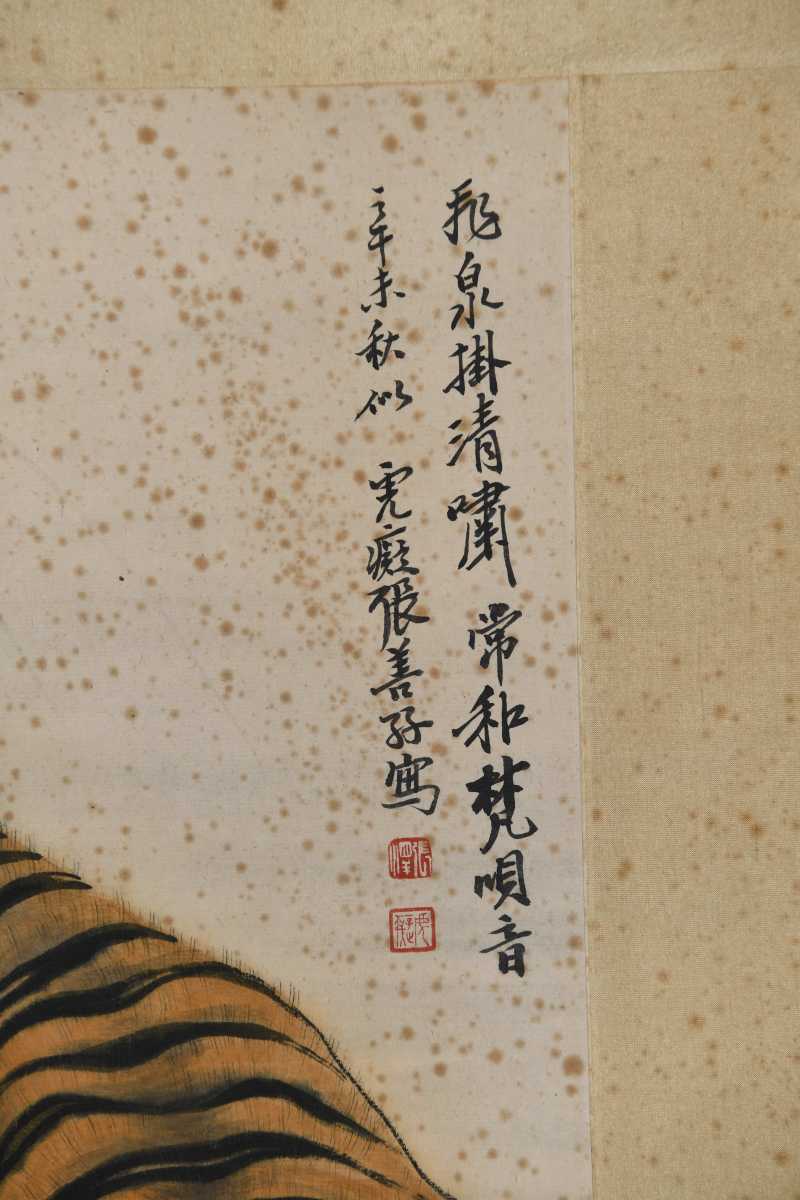 飛泉掛清嘯常和梵唄音
辛未秋似虎癡張善孖寫
張澤
虎癡